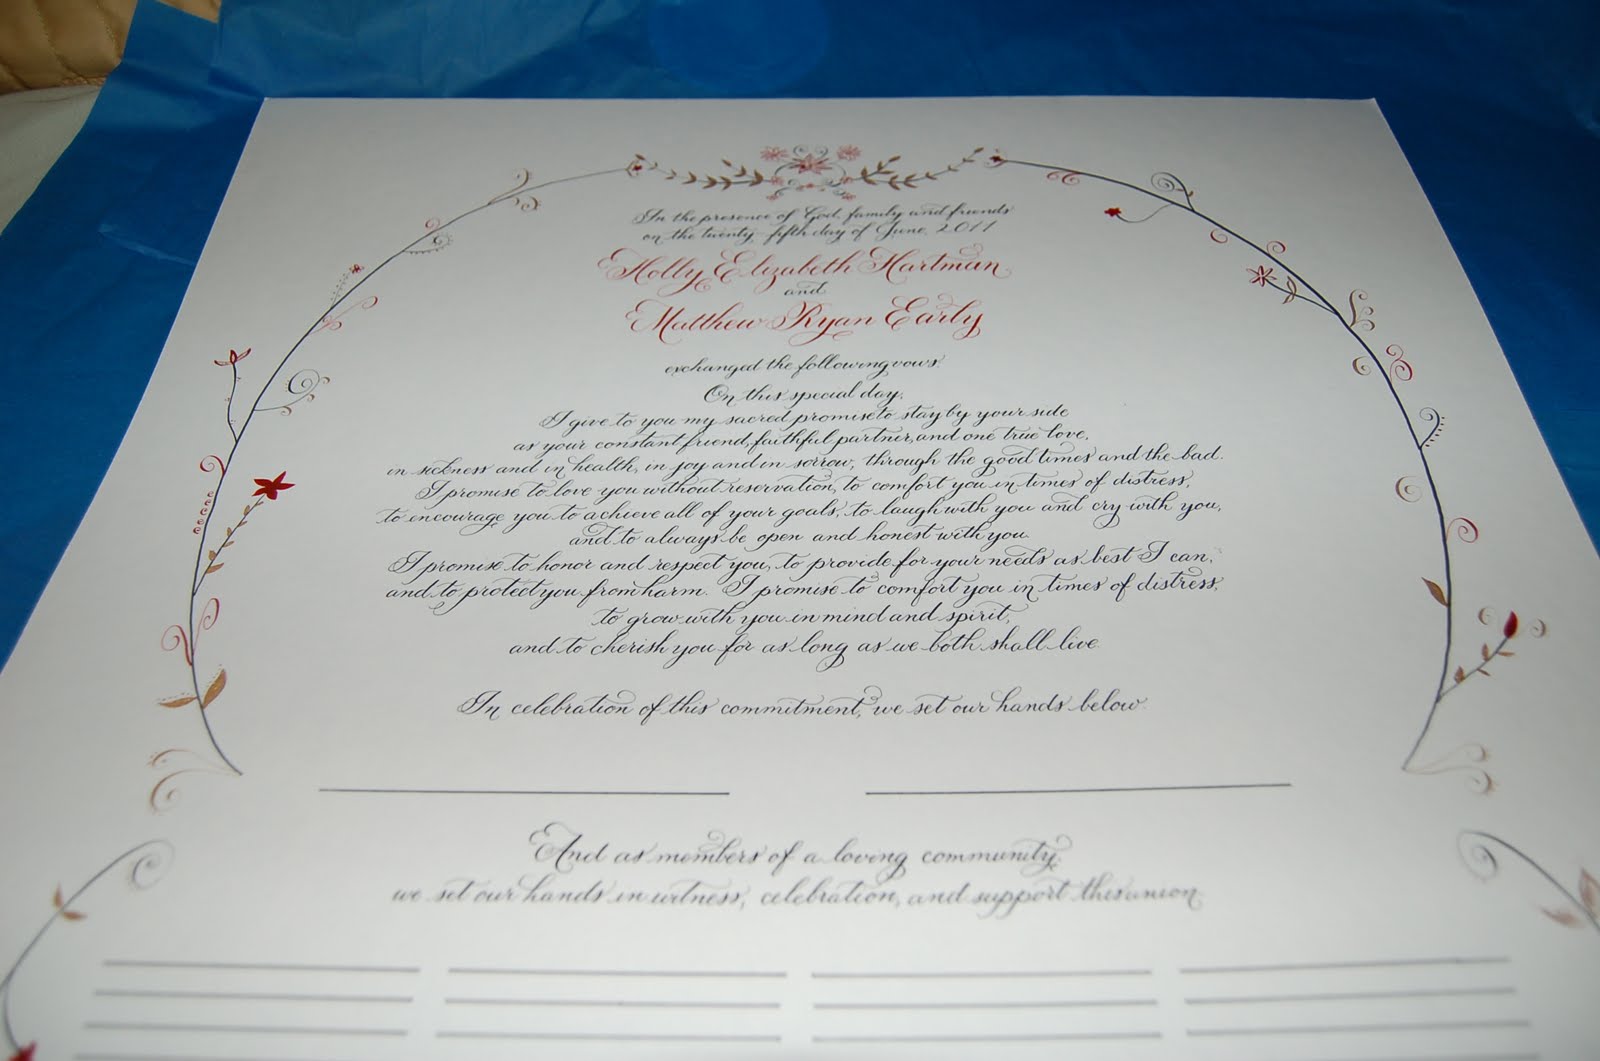 In the presence of God, family and friends
on the twenty-fifth day of June, 2011
Holly Elizabeth Hartman
and
Matthew Ryan Early
exchanged the following vows:
On this special day,
I give to you my sacred promise to stay by your side
as your constant friend, faithful partner, and one true love,
in sickness and in health, in joy and in sorrow, through the good times and the bad.
I promise to love you without reservation, to comfort you in times of distress,
to encourage you to achieve all of your goals, to laugh with you and cry with you,
and to always be open and honest with you.
I promise to honor and respect you, to provide for your needs as best I can,
and to protect you from harm. I promise to comfort you in times of distress,
to grow with you in mind and spirit,
and to cherish you for as long as we both shall live.
In celebration of this commitment, we set our hands below.
And as members of a loving community,
we set our hands in witness, celebration, and support this union